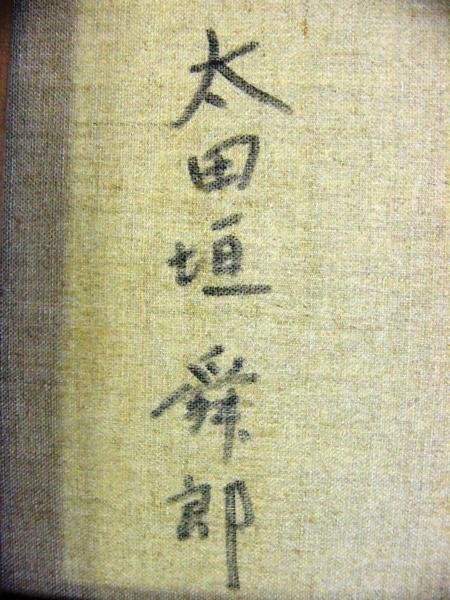 太田垣舜郎